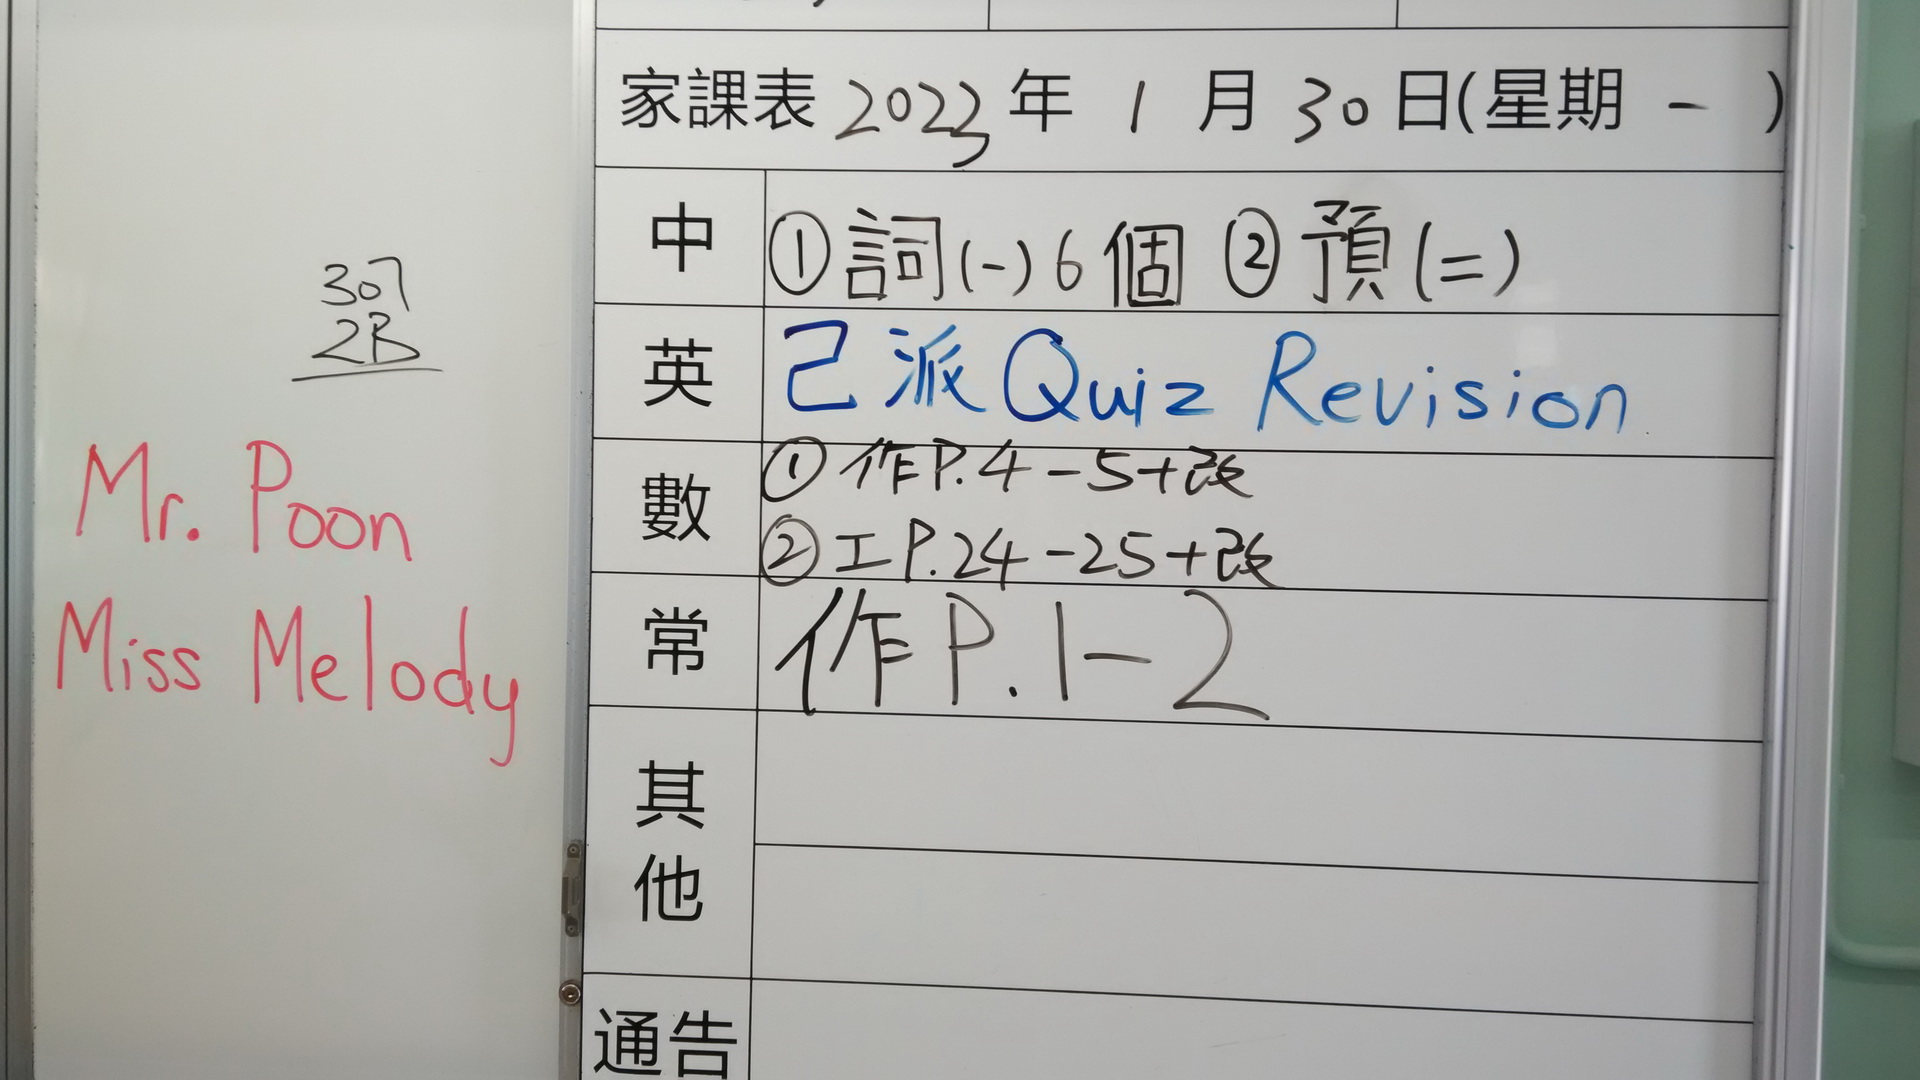 307
2B
Mr. Poon
Miss Melody
家課表 2023 年 1 月 30 日(星期 一 )
中 ①詞(一)6個 ②預(二)
英 己派Quiz Revision
數 ①作P.4-5+改
②工P.24-25+改
常 作P.1-2
其他
通告